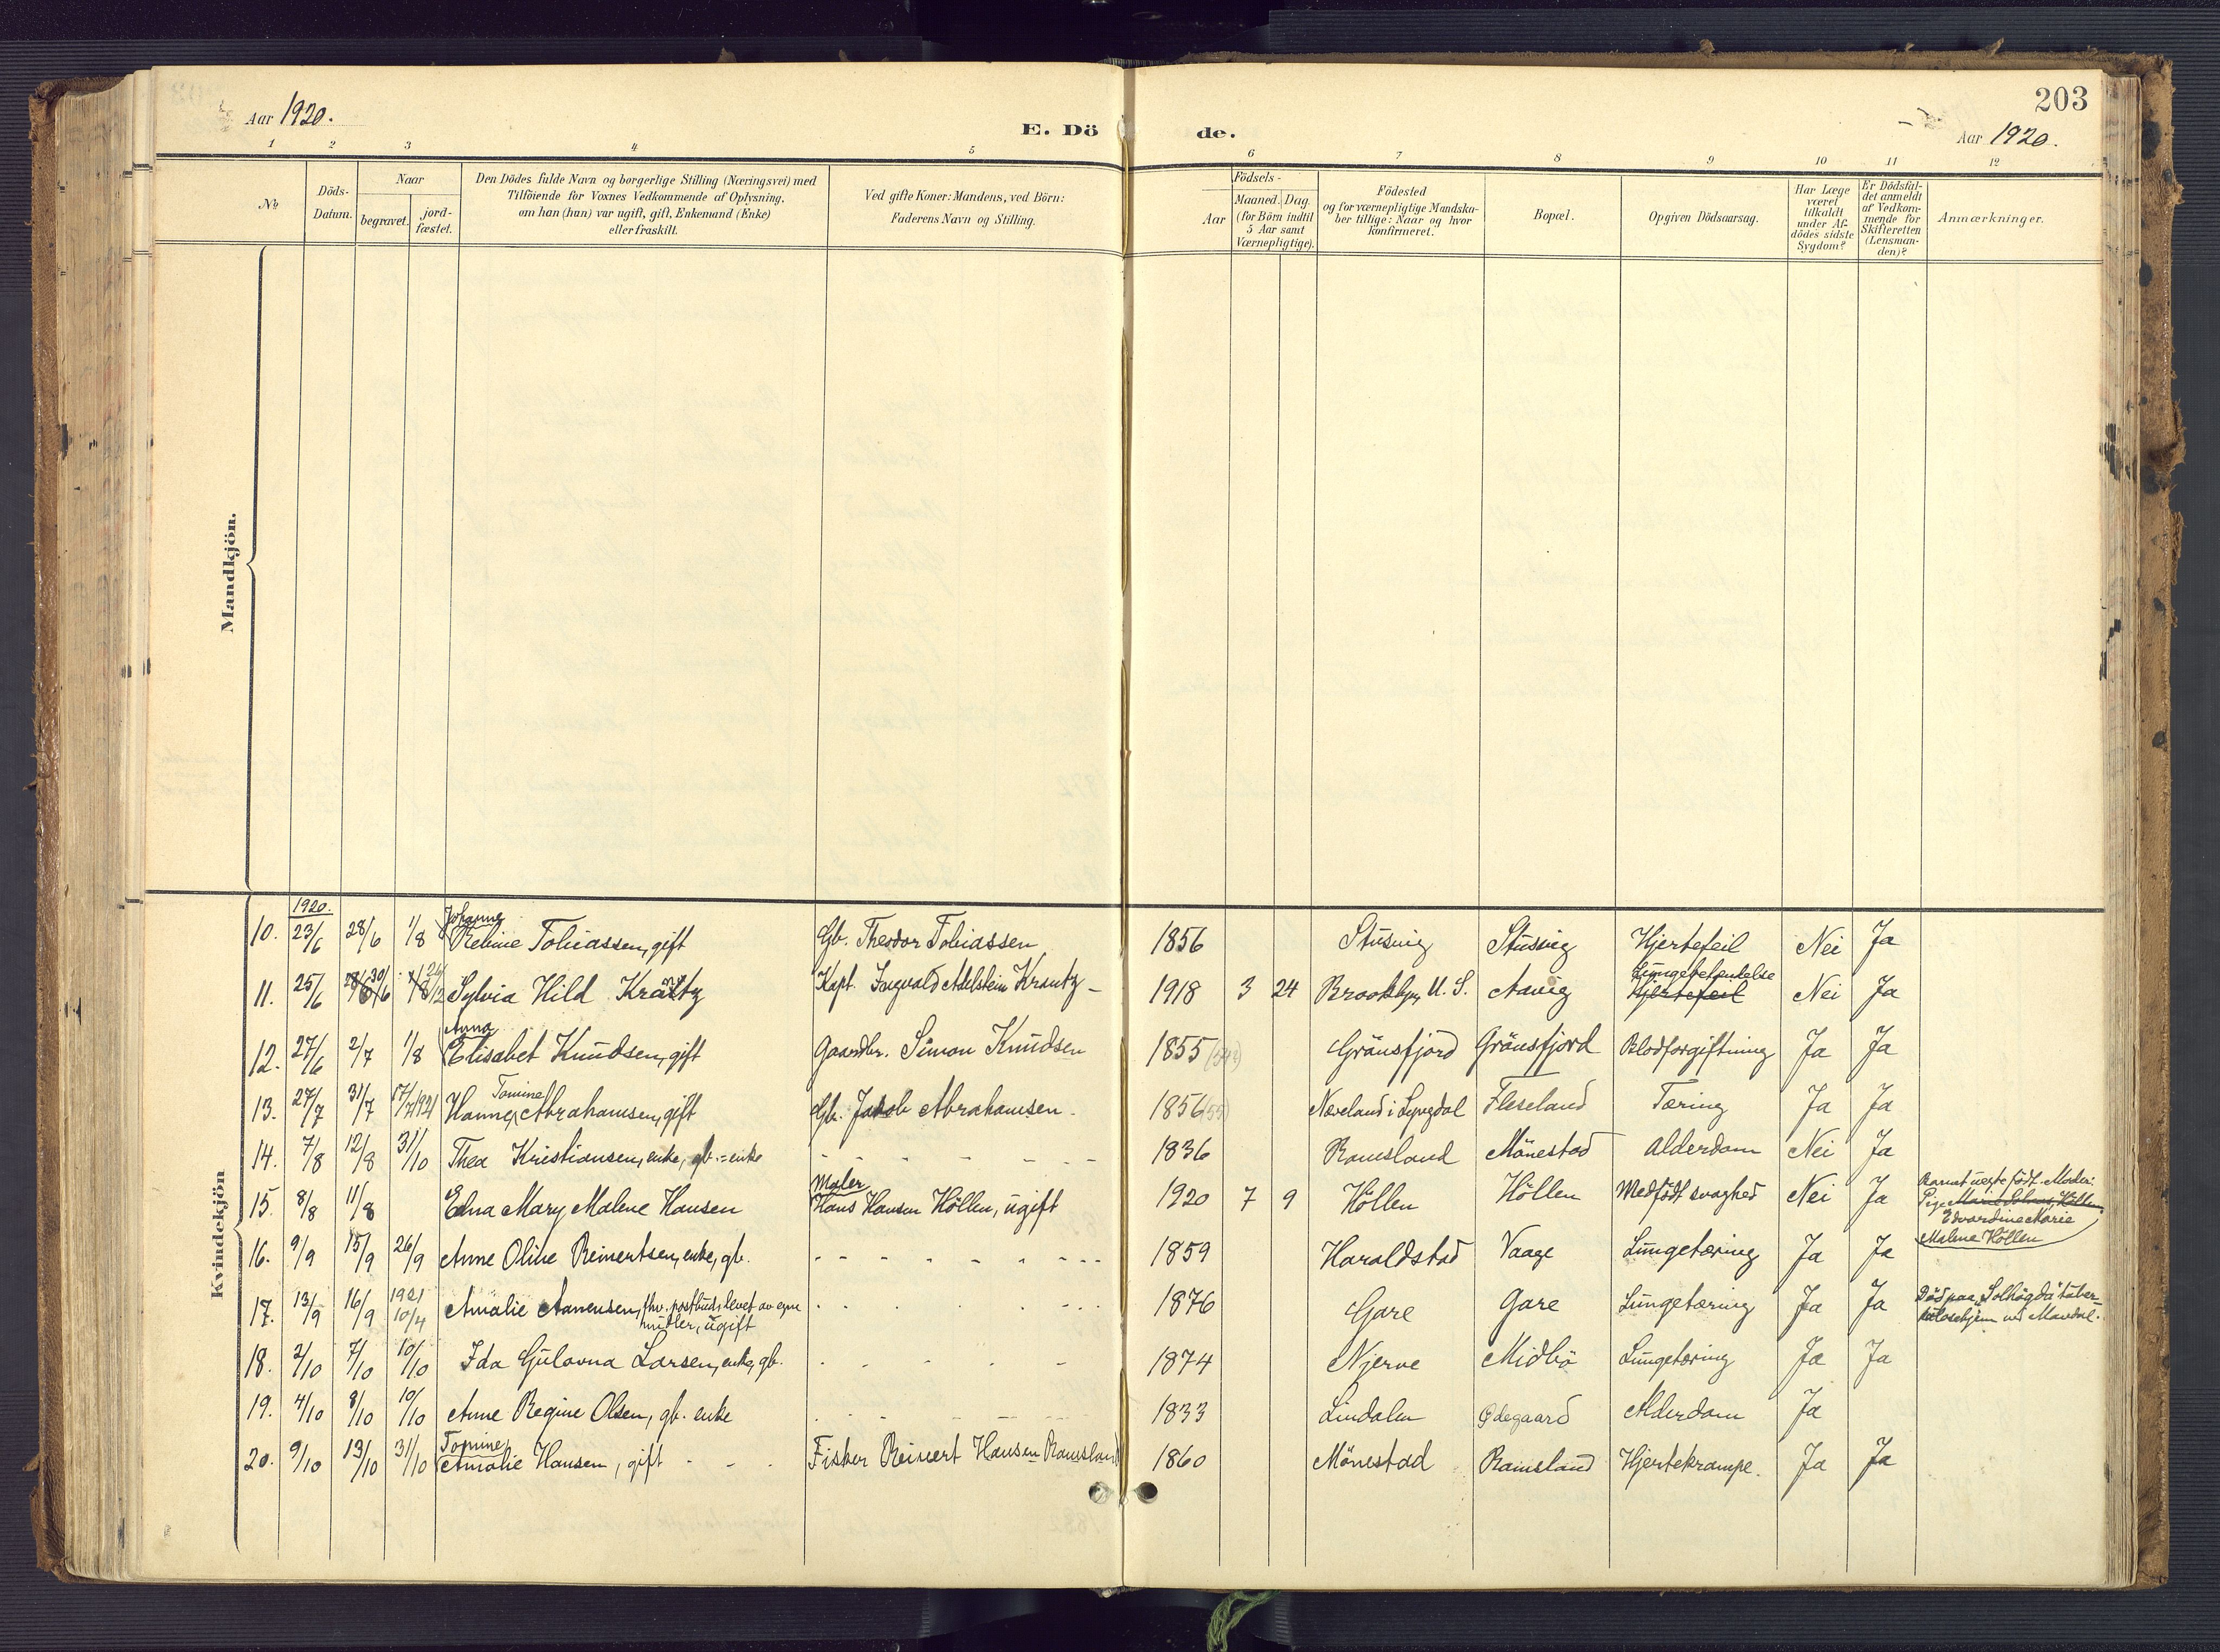 Aar 1920.
E. Dö de.
203
Aar 1920.
1 2 3 4 5 6 7 8 9 10 11 12
No
Döds-
Datum.
Naar
begravet.
jord-
fæstet.
Den Dödes fulde Navn og borgerlige Stilling (Næringsvei) med
Tilföiende for Voxnes Vedkommende af Oplysning,
om han (hun) var ugift, gift, Enkemand (Enke)
eller fraskilt.
Ved gifte Koner: Mandens, ved Börn:
Faderens Navn og Stilling.
Födsels-
Aar
Maaned. Dag.
(for Börn indtil
5 Aar samt
Værnepligtige).
Födested
og for værnepligtige Mandska-
ber tillige: Naar og hvor
konfirmeret.
Bopæl.
Opgiven Dödsaarsag.
Har Læge
været
tilkaldt
under Af-
dödes sidste
Sygdom?
Er Dödsfal-
det anmeldt
af Vedkom-
mende for
Skifteretten
(Lensman-
den)?
Anmærkninger.
Mandkjön.
Kvindekjön
1920.
Johanne
10. 23/6 28/6 1/8 Rebine Tobiassen, gift Gb. Theodor Tobiassen 1856 Stusvig Stusvig Hjertefeil Nei Ja
Lungebetendelse
11. 25/6 28/6 30/6 Sylvia Hild Krantz Kapt. Ingvald Adelstein Krantz 1918 3 24 Brooklyn, U. S. Aavig Hjertefeil Nei Ja
Anna
12. 27/6 2/7 1/8 Elisabet Knudsen, gift Gaardbr. Simon Knudsen 1855 Gränsfjord Gränsfjord Blodforgiftning Ja Ja
Tomine
13. 27/7 31/7 17/7 1921 Hanne, Abrahamsen, gift Gb. Jakob Abrahamsen 1856 (55) Næveland i Lyngdal Fleseland Tæring Ja Ja
14. 7/8 12/8 31/10 Thea Kristiansen, enke, gb.-enke 1836 Ramsland Mönestad Alderdom Nei Ja
Maler
15. 8/8 11/8 Edna Mary Malene Hansen Hans Hansen Höllen, ugift 1920 7 9 Höllen Höllen Medfödt svaghed Nei Ja Barnet uegte födt. Moder:
Pige
Edvardine Marie
Malene Höllen
16. 9/9 15/9 26/9 Anne Oline Reinertsen, enke, gb. 1859 Haraldstad Vaage Lungetæring Ja Ja
17. 13/9 16/9 1921 10/4 Amalie Aanensen, fhv. postbud, levet av egne
midler, ugift 1876 Gare Gare Lungetæring Ja Ja Död paa Solhögda tuber-
kulosehjem ved Mandal.
18. 2/10 7/10 10/10 Ida Gulovna Larsen, enke, gb. 1874 Njerve Midbö Lungetæring Ja Ja
19. 4/10 8/10 10/10 Anne Regine Olsen, gb. enke 1833 Lindalen Ødegaard Alderdom Ja
Tomine
20. 9/10 13/10 31/10 Amalie Hansen, gift Fisker Reinert Hansen Ramsland 1860 Mönestad Ramsland Hjertekrampe. Ja Ja